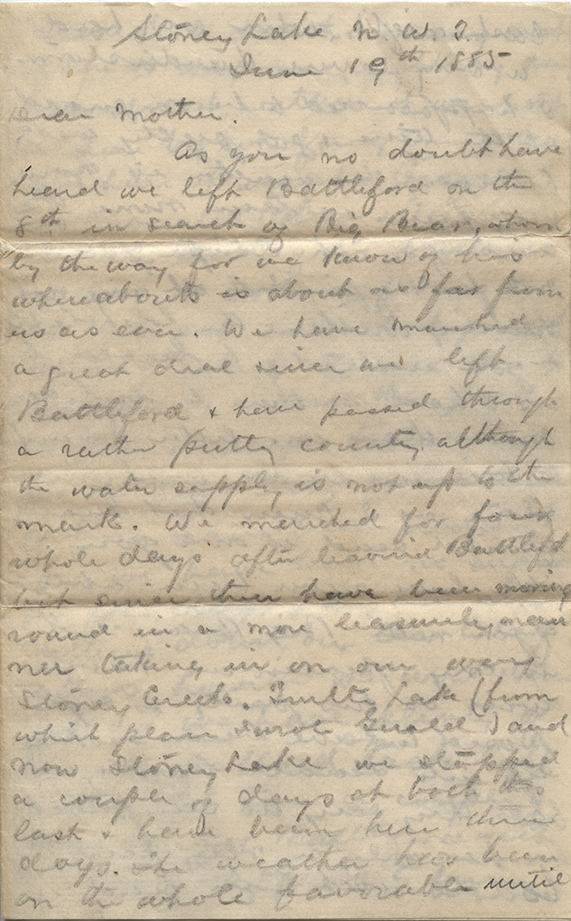 Stoney Lake N W T.
June 19th 1885
Dear Mother.
As you no doubt have
heard we left Battleford on the
8th in search of Big Bear, whom
by the way for we know of his
whereabouts is about as far from
us as ever. We have marched
a great deal since we left
Battleford & have passed through
a rather pretty country although
the water supply is not up to the
mark. We marched for four
whole days after leaving Battlefd
but since then have been moving
round in a more leasurely man
ner taking in on our way
Stoney Creek. Lake (from
which place I wrote Gerald) and
now Stoney Lake we stopped
a couple of days at both the
last & have been here three
days. The weather has been
on the whole favorable until